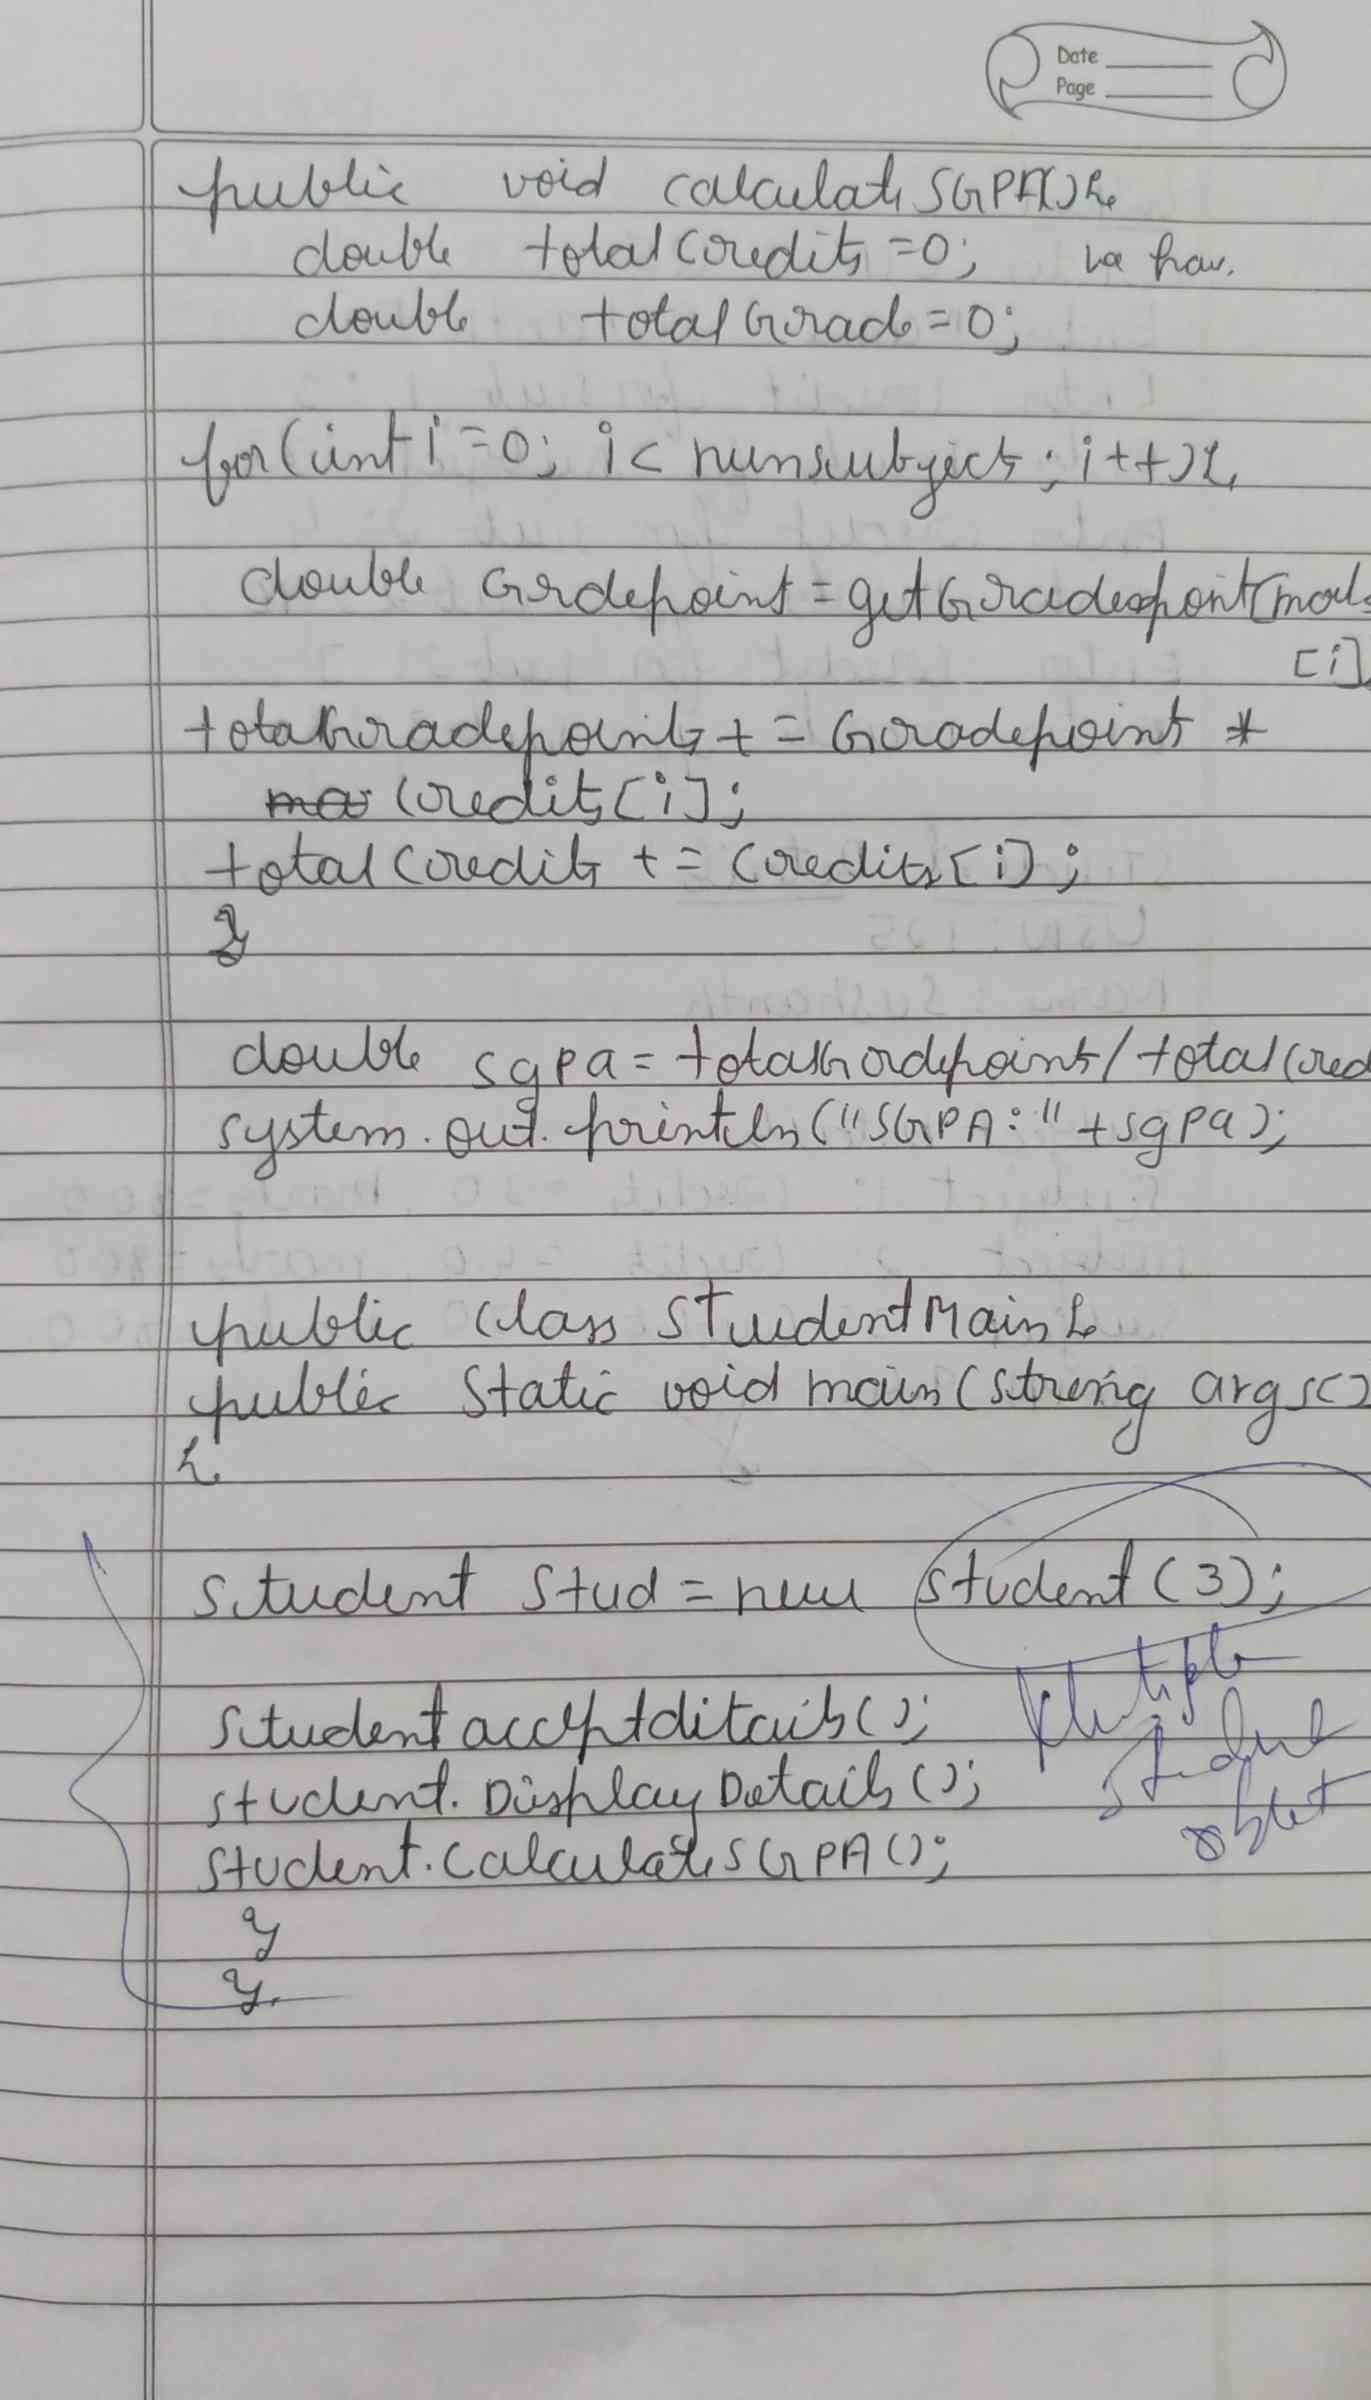 Date
Page
public void calculate SGPA(){
double totalCredits = 0;
double totalGrade = 0;
for(int i = 0; i < numsubjects; i++){
double Grdepoint = getGradepoint(marks
[i]
totalGradepoints += Gradepoint *
credits[i];
totalCredits += credits[i];
}
double sgpa = totalGrdepoint / totalCred
system.out.println("SGPA:" + sgpa);
public class StudentMain {
public Static void main(string args[]
{
Student Stud = new student(3);
Multiple
Student
object
Student acceptditails();
student.DisplayDetails();
student.calculateSGPA();
}
}